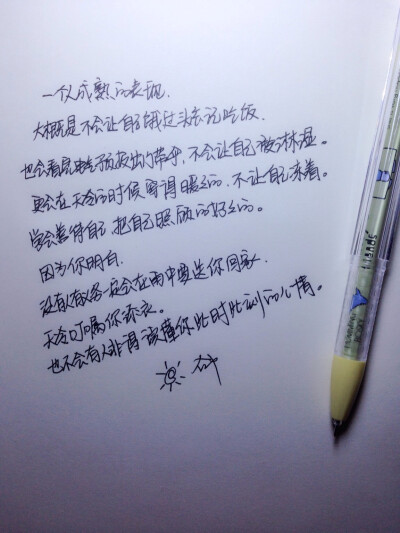 一个人成熟的表现.
大概是不会让自己饿过头忘记吃饭.
也会看完天气预报出门带伞,不会让自己被淋湿。
更会在天冷的时候穿得暖暖的.不让自己冻着。
学会善待自己,把自己照顾的好好的。
因为你明白.
没有人有义务一定会在雨中要送你回家.
天冷叮嘱你添衣。
也不会有人非得读懂你此时此刻的心情。